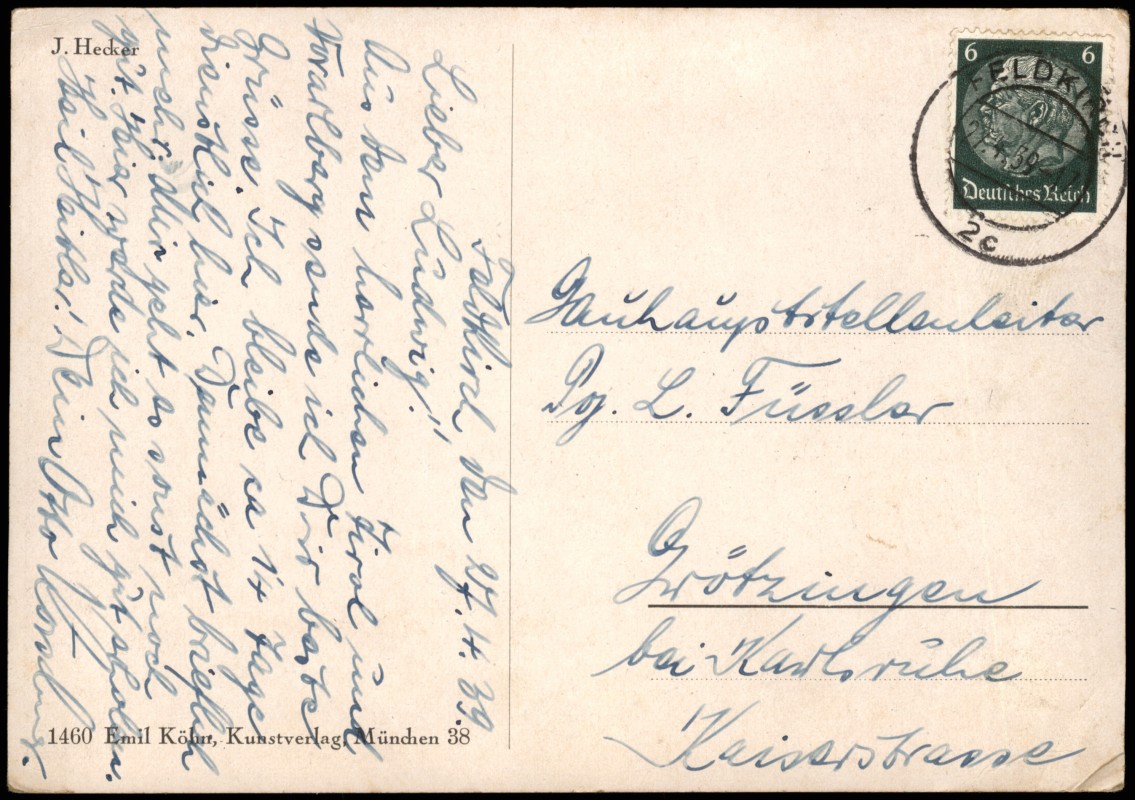 J. Hecker
Feldkirch, den 27.4.39.
Lieber Ludwig!
Aus dem herrlichen Tirol und
Vorarlberg sende ich Dir beste
Grüsse. Ich bleibe ca 14 Tage
dienstlich hier. Demnächst brieflich
mehr. Mir geht es sonst noch
gut. Hier werde ich mich gut erholen.
Heil Hitler! Dein Otto
1460 Emil Köhn, Kunstverlag, München 38
6 6
Deutsches Reich
FELDKIRCH
27.4.39
2c
Gauhauptstellenleiter
Pg. L. Füssler
Grötzingen
bei Karlsruhe
Kaiserstrasse